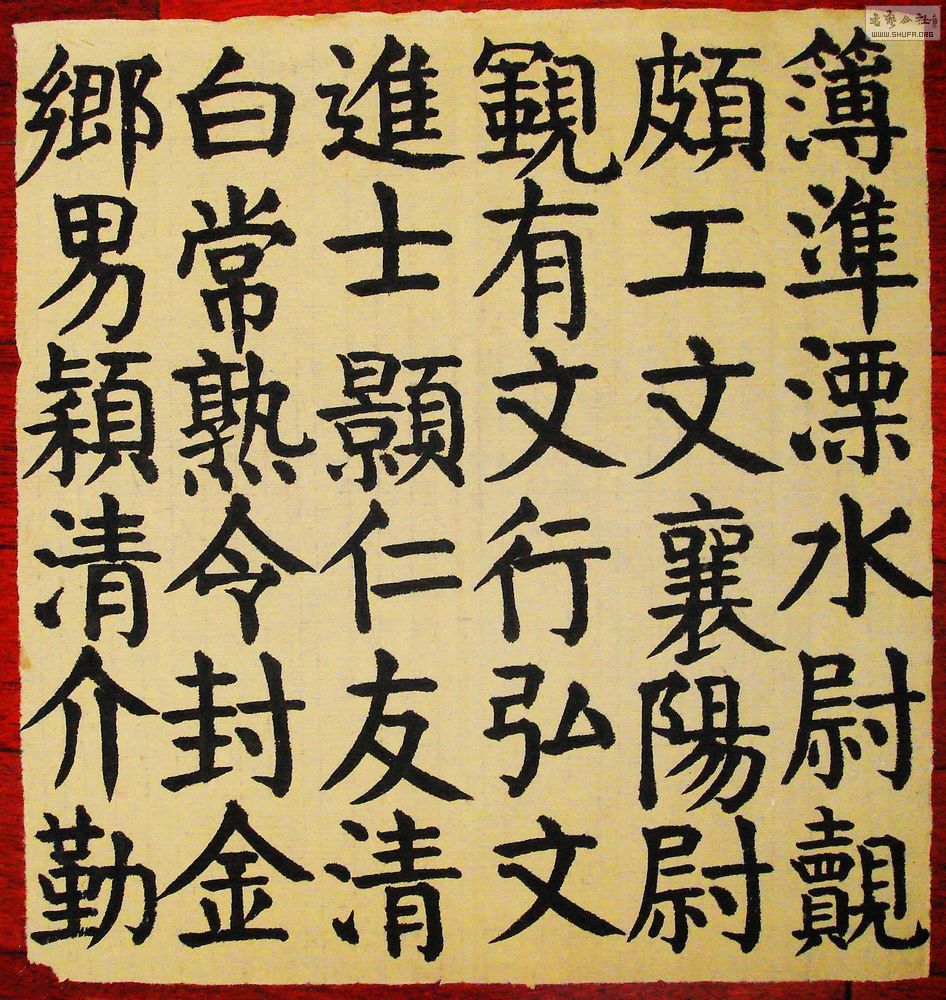 簿準溧水尉覿
頗工文襄陽尉
有文行弘文
進士顥仁友清
白常熟令封金
鄉男穎清介勤
WWW.SHUFA.ORG